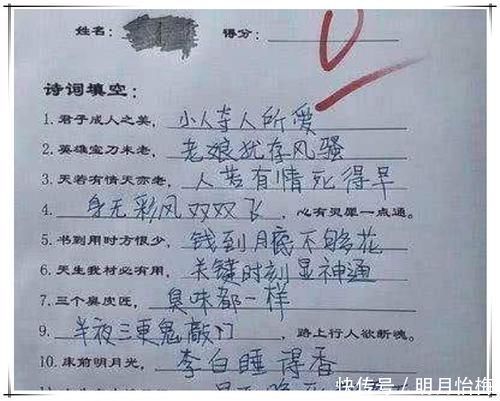 姓名： 得分：
0
诗词填空：
1.君子成人之美，小人夺人所爱
2.英雄宝刀未老，老娘犹存风骚
3.天若有情天亦老，人若有情死得早
4.身无彩凤双双飞，心有灵犀一点通。
5.书到用时方恨少，钱到月底不够花
6.天生我材必有用，关键时刻显神通
7.三个臭皮匠，臭味都一样
9.半夜三更鬼敲门，路上行人欲断魂。
10.床前明月光，李白睡得香
快传号／明月怡梅